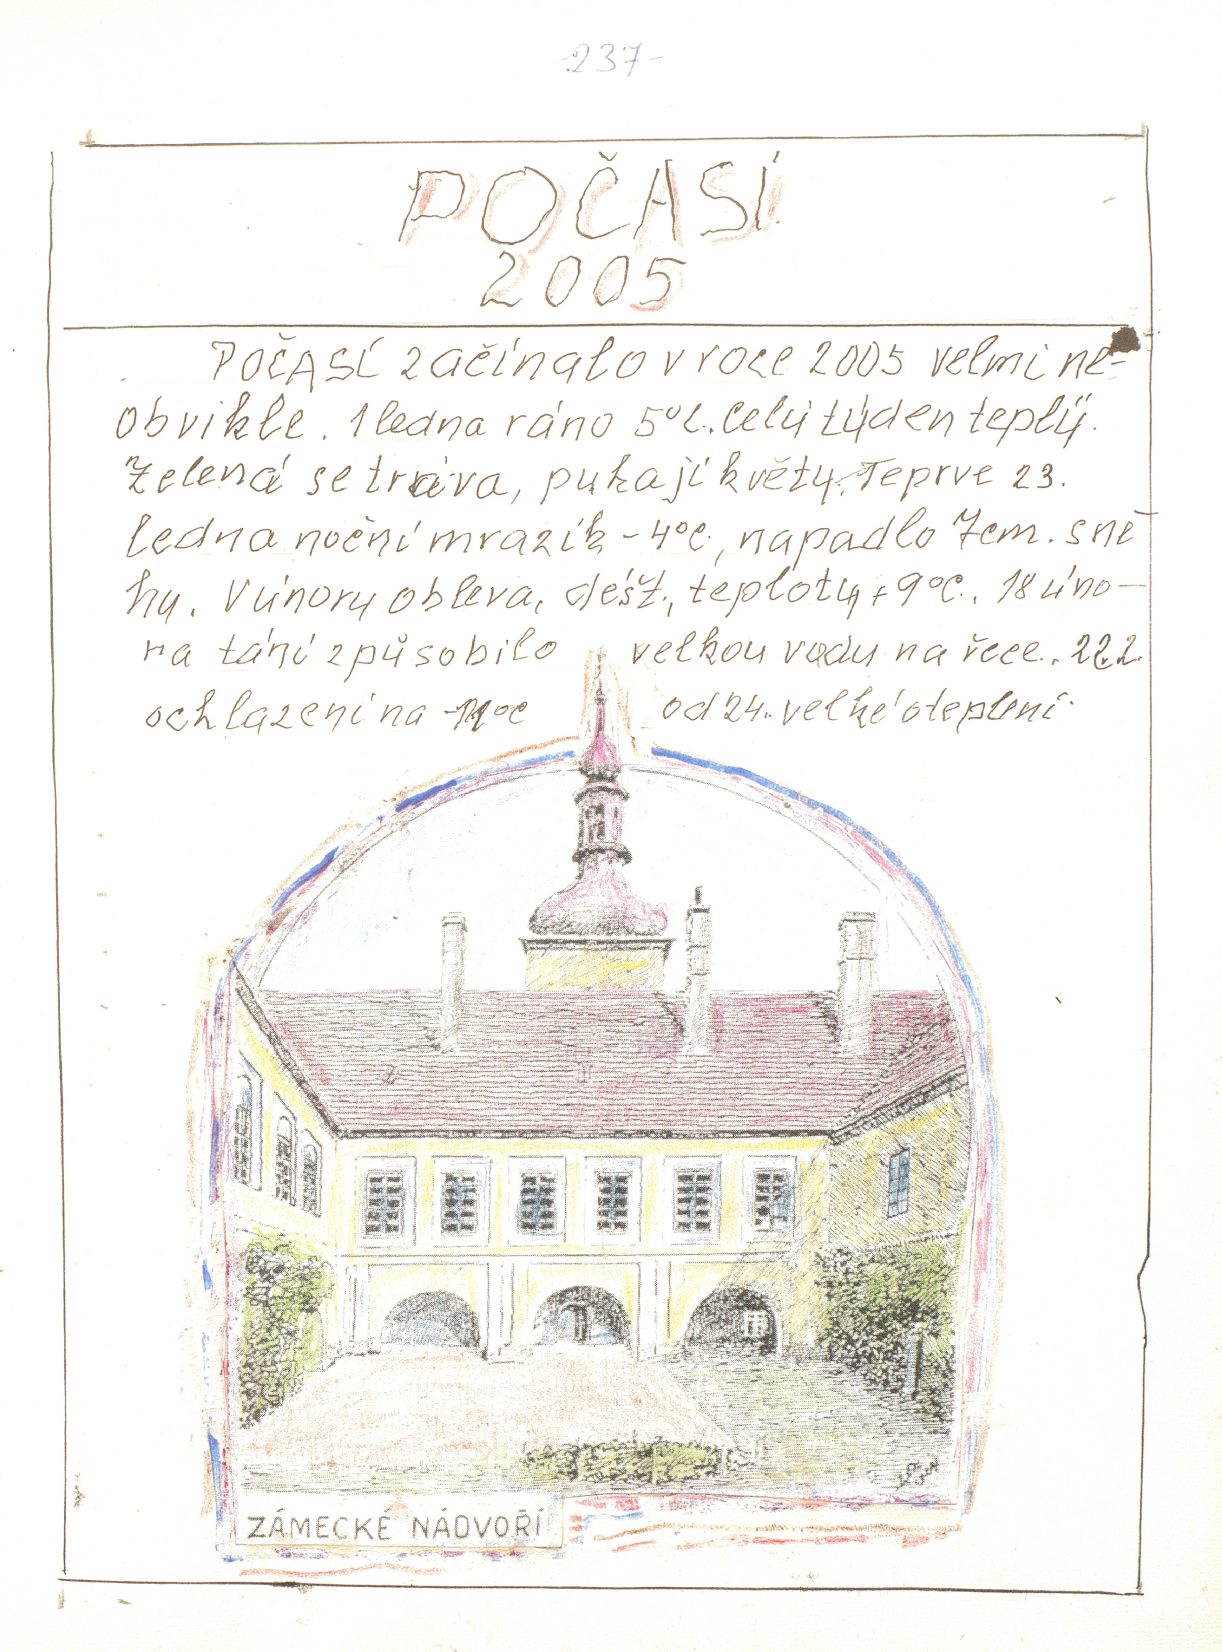 -237-
POČASÍ
2005
POČASÍ začínalo v roce 2005 velmi ne-
obvikle. 1 ledna ráno 5°c. Celý týden teplý.
Zelená se tráva, pukají květy. Teprve 23.
ledna noční mrazík -4°c, napadlo 7cm. sně
hu. V únoru obleva, déšť, teploty +9°c. 18 úno-
ra tání způsobilo velkou vodu na řece. 22.2.
ochlazení na -11°c od 24. velké oteplení.
ZÁMECKÉ NÁDVOŘÍ